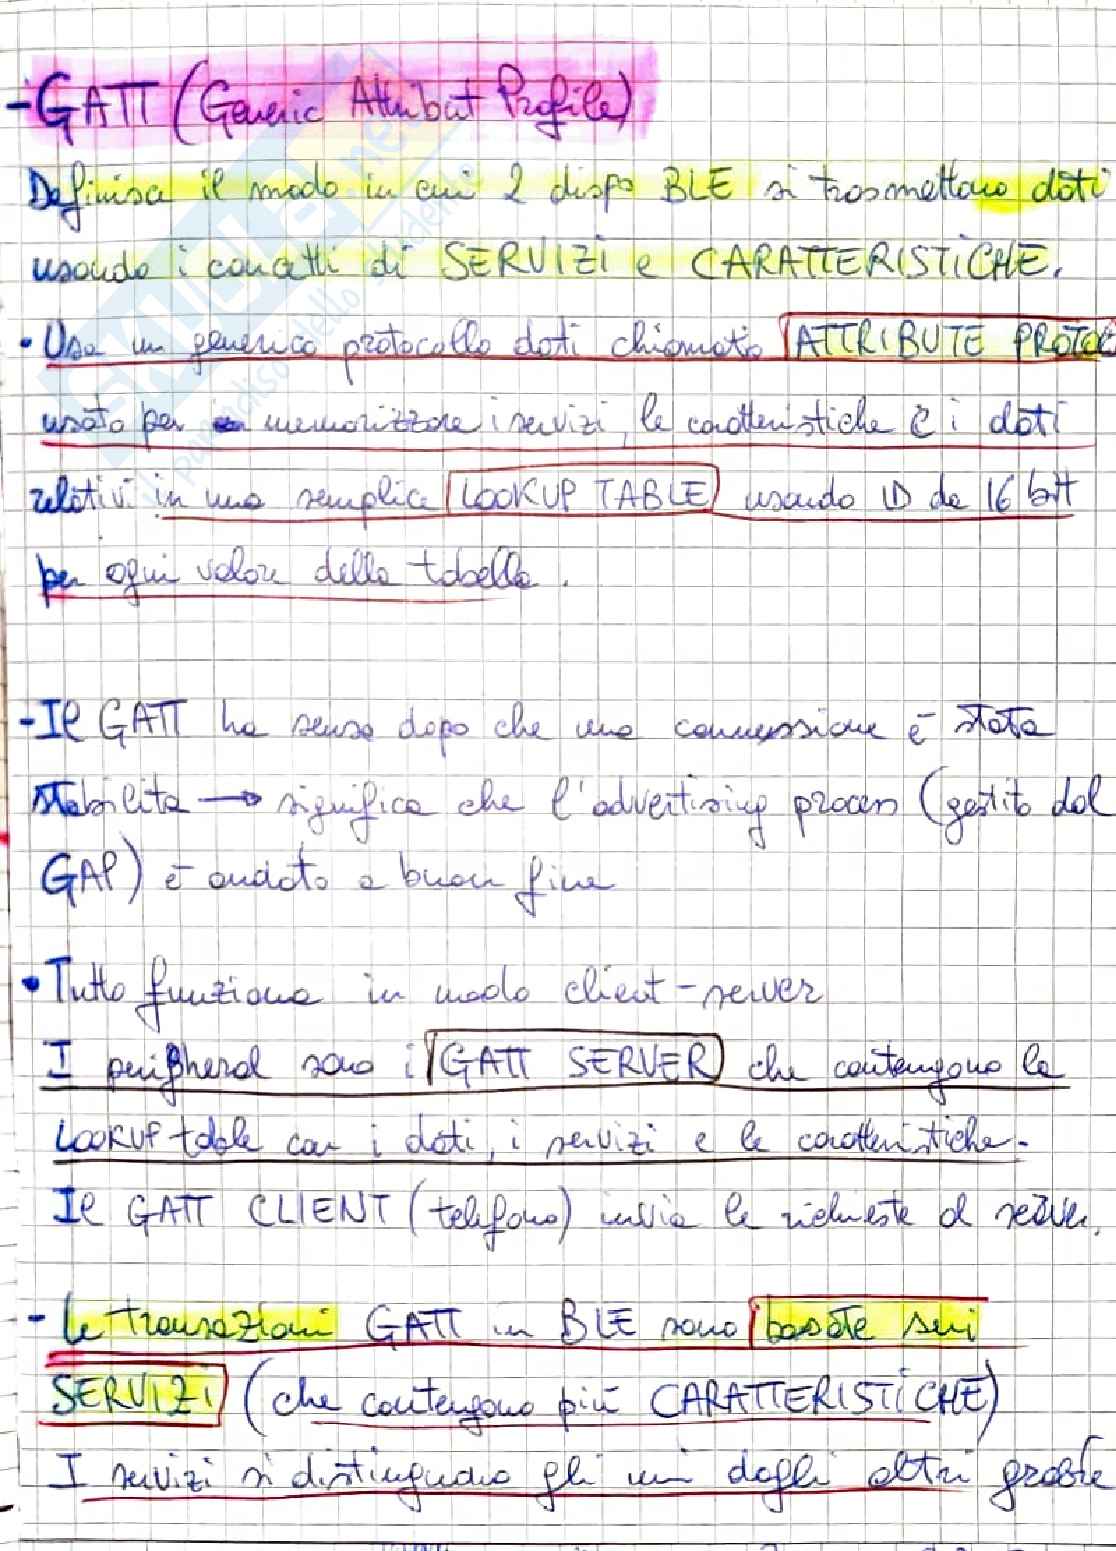 - GATT (Generic Attribut Profile)
Definisce il modo in cui 2 dispo BLE si trasmettano dati
usando i concetti di SERVIZI e CARATTERISTICHE.
• Usa un generico protocollo dati chiamato ATTRIBUTE PROTOC
usato per memorizzare i servizi, le caratteristiche e i dati
relativi in una semplice LOOKUP TABLE usando ID da 16 bit
per ogni valore della tabella.
- Il GATT ha senso dopo che una connessione è stata
stabilita → significa che l'advertising process (gestito dal
GAP) è andato a buon fine
• Tutto funziona in modo client-server
I peripheral sono i GATT SERVER che contengono la
LOOKUP table con i dati, i servizi e le caratteristiche.
Il GATT CLIENT (telefono) invia le richieste al server.
- Le transazioni GATT in BLE sono basate sui
SERVIZI (che contengono più CARATTERISTICHE)
I servizi si distinguono gli uni dagli altri grazie